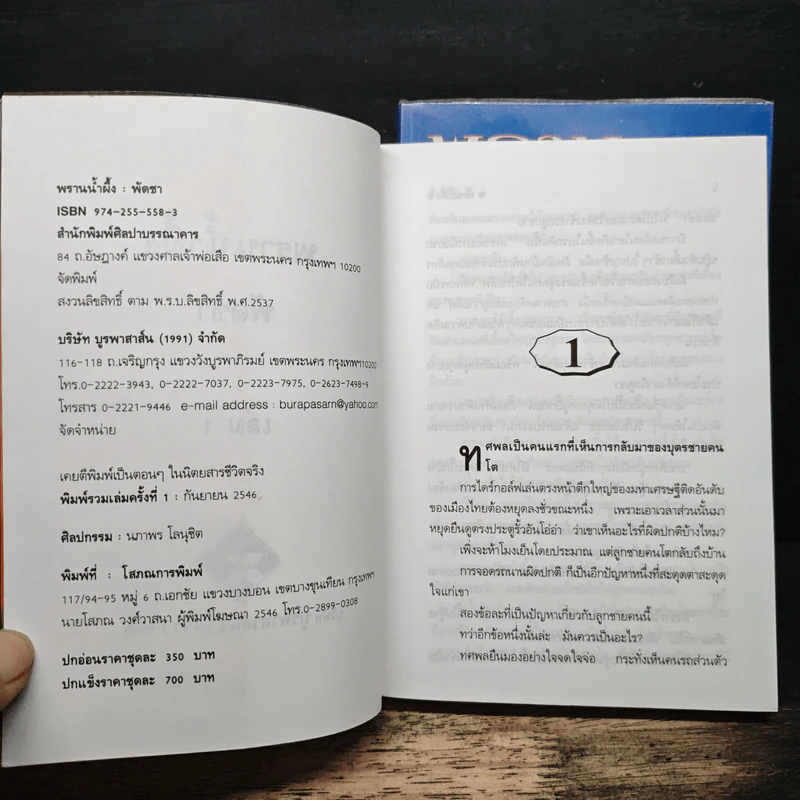 พรานน้ำผึ้ง : พัดชา
ISBN 974-255-558-3
สำนักพิมพ์ศิลปาบรรณาคาร
84 ถ.อัษฎางค์ แขวงศาลเจ้าพ่อเสือ เขตพระนคร กรุงเทพฯ 10200
จัดพิมพ์
สงวนลิขสิทธิ์ ตาม พ.ร.บ.ลิขสิทธิ์ พ.ศ.2537
บริษัท บูรพาสาส์น (1991) จำกัด
116-118 ถ.เจริญกรุง แขวงวังบูรพาภิรมย์ เขตพระนคร กรุงเทพฯ10200
โทร.0-2222-3943, 0-2222-7037, 0-2223-7975, 0-2623-7498-9
โทรสาร 0-2221-9446 e-mail address : burapasarn@yahoo.com
จัดจำหน่าย
เคยตีพิมพ์เป็นตอนๆ ในนิตยสารชีวิตจริง
พิมพ์รวมเล่มครั้งที่ 1 : กันยายน 2546
ศิลปกรรม : นภาพร โลนุชิต
พิมพ์ที่ : โสภณการพิมพ์
117/94-95 หมู่ 6 ถ.เอกชัย แขวงบางบอน เขตบางขุนเทียน กรุงเทพฯ
นายโสภณ วงศ์วาสนา ผู้พิมพ์โฆษณา 2546 โทร.0-2899-0308
ปกอ่อนราคาชุดละ 350 บาท
ปกแข็งราคาชุดละ 700 บาท
1
ทศพลเป็นคนแรกที่เห็นการกลับมาของบุตรชายคน
โต
การไดร์กอล์ฟเล่นตรงหน้าตึกใหญ่ของมหาเศรษฐีติดอันดับ
ของเมืองไทยต้องหยุดลงชั่วขณะหนึ่ง เพราะเอาเวลาส่วนนั้นมา
หยุดยืนดูตรงประตูรั้วอันโอ่อ่า ว่าเขาเห็นอะไรที่ผิดปกติบ้างไหม?
เพิ่งจะห้าโมงเย็นโดยประมาณ แต่ลูกชายคนโตกลับถึงบ้าน
การจอดรถนานผิดปกติ ก็เป็นอีกปัญหาหนึ่งที่สะดุดตาสะดุด
ใจแก่เขา
สองข้อละที่เป็นปัญหาเกี่ยวกับลูกชายคนนี้
ทว่าอีกข้อหนึ่งนั้นล่ะ มันควรเป็นอะไร?
ทศพลยืนมองอย่างใจจดใจจ่อ กระทั่งเห็นคนรถส่วนตัว